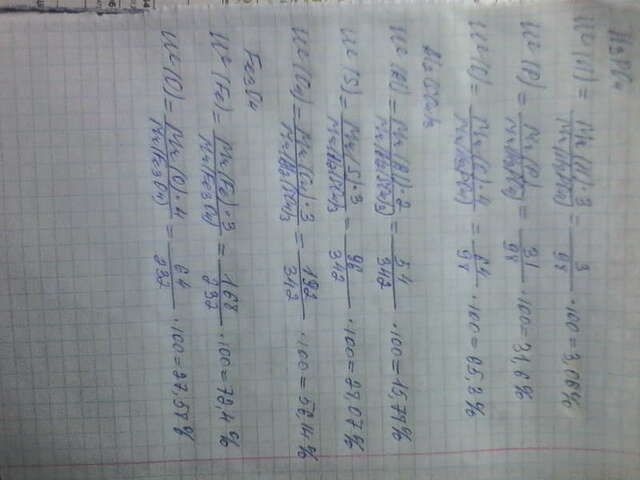 H3PO4
W (H) = Mr (H) · 3 / Mr (H3PO4) = 3 / 98 · 100 = 3,06%
W (P) = Mr (P) / Mr (H3PO4) = 31 / 98 · 100 = 31,6%
W (O) = Mr (O) · 4 / Mr (H3PO4) = 64 / 98 · 100 = 65,3%
Al2(SO4)3
W (Al) = Mr (Al) · 2 / Mr (Al2(SO4)3) = 54 / 342 · 100 = 15,79%
W (S) = Mr (S) · 3 / Mr (Al2(SO4)3 = 96 / 342 · 100 = 27,07%
= 192 / 342 · 100 = 56,14%
Fe3O4
W (Fe) = Mr (Fe) · 3 / Mr (Fe3O4) = 168 / 232 · 100 = 72,4%
W (O) = Mr (O) · 4 / Mr (Fe3O4) = 64 / 232 · 100 = 27,58%